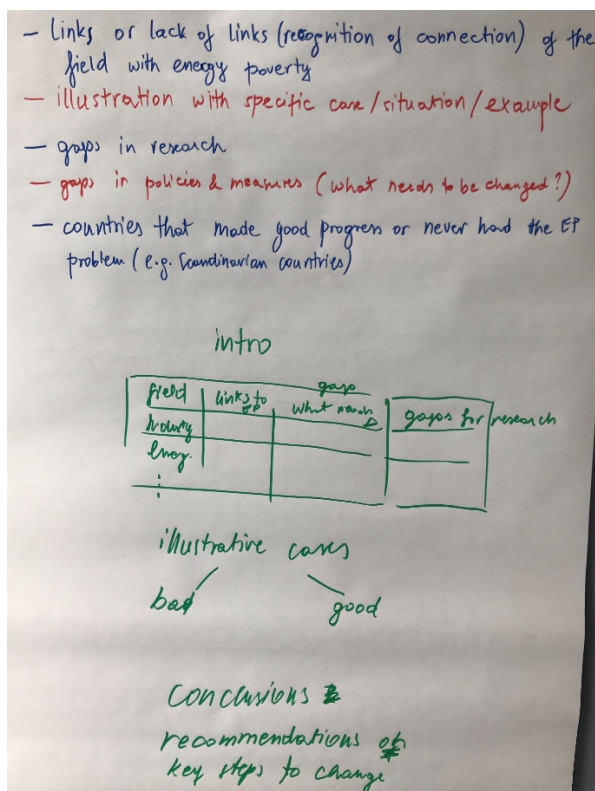 – links or lack of links (recognition of connection) of the
field with energy poverty
– illustration with specific case/situation/example
– gaps in research
– gaps in policies & measures (what needs to be changed?)
– countries that made good progress or never had the EP
problem (e.g. Scandinavian countries)
intro
gaps
field links to EP what needs gaps for research
housing
energ.
⋮
illustrative cases
bad good
Conclusions &
recommendations of
key steps to change